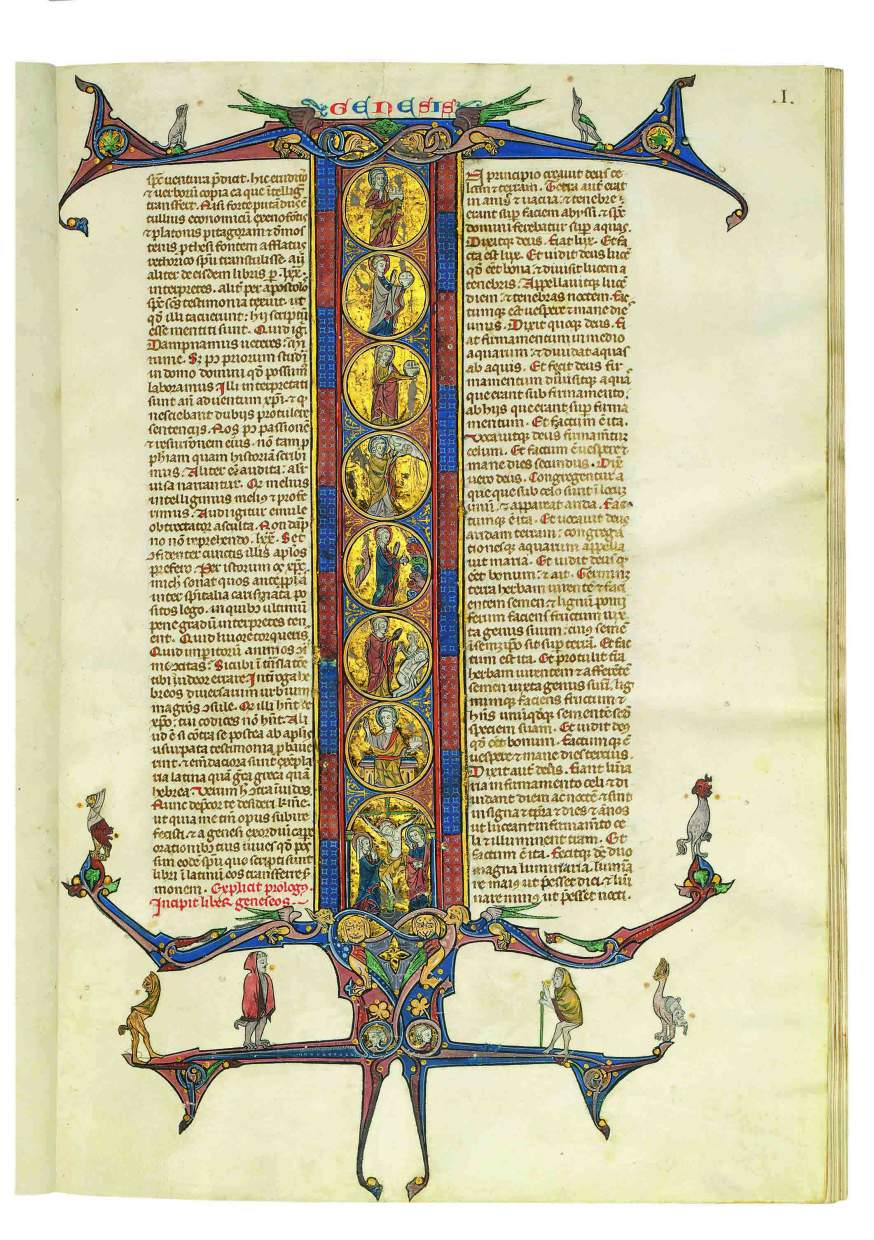 GENESIS
.I.
spc ventura pdicat. hic eruditō
⁊ verborū copia ea que ītelligit
transfert. Nisi forte putādus ē
tullius economicū xenofōtis
⁊ platonis pitagoram ⁊ demos
tenis
rethorico spū transtulisse. aut
aliter de eisdem libris p. lxx.
interpretes. alit per apostolos
spc scs testimonia texuit. ut
qd illi tacuerunt: hij scriptū
esse mentiti sunt. Quid igit
Dampnamus veteres: mi
nime. Sz ps priorum studia
in domo domini qd possum
laboramus Illi interpretati
sunt an aduentum xpi. ⁊ qd
nesciebant dubijs protulere
sentencijs. Nos ps passionem
⁊ resurōnem eius. nō tam p
phiam quam historiā scribi
mus. Aliter er audita: alit
uisa narrantur. Qr melius
intelligimus melius ⁊ profe
rimus. Audi igitur emule
obtrectator asculta. Non dāp
no non reprehendo. lxx. Set
cfidenter cunctis illis aplos
prefero. Per istorum os xpc
mich sonat quos
inter spiritalia carismata po
sitos lego. in quibus ultimū
pene gradū interpretes ten
ent. Quid liuore torqueris
Quid imperitorū animos
me ccitas. Sicubi ī trīslatōe
tibi uideor errare Introga he
breos diuersarum urbium
magros ɔsule. Qr illi hnt de
xpo: tui codices nō hnt. Ali
ud ē si cōtra se postea ab aplis
usurpata testimonia pbaue
rint. ⁊ emēdaciora sunt exēpla
ria latina quā greca. greca quā
hebrea
Nunc depcor te desideri kme.
ut quia me tm opus subire
fecisti. ⁊ a genesi exordiū cape
orationibus tuis iuues qo pos
sim eodē spū quo scripti sunt
libri ī latinū eos transferre s
monem. Explicit prologus.
Incipit liber geneseos.
In principio creauit deus ce
lum ⁊ terram. Terra aut erat
inanis ⁊ uacua: ⁊ tenebre
erant sup faciem abyssi: ⁊ spc
domini ferebatur sup aquas.
Dixitqz deus. Fiat lux. Et fa
cta est lux. Et uidit deus lucē
qd eēt bona: ⁊ diuisit lucem a
tenebris. Appellauitqz lucē
diem: ⁊ tenebras noctem. Fac
tumqz est uespere ⁊ mane dies
unus. Dixit quoqz deus. Fi
at firmamentum in medio
aquarum: ⁊ diuidat aquas
ab aquis. Et fecit deus fir
mamentum diuisitqz aquas
que erant sub firmamento.
ab hijs que erant sup firma
mentum. Et factum ē ita.
Vocauitqz deus firmamtum
celum. Et factum ē uespere ⁊
mane dies secundus. Dixit
uero deus. Congregentur a
que que sub celo sunt ī locum
unū. ⁊ appareat arida. Fac
tumqz ē ita. Et uocauit deus
aridam terram: congrega
tionesqz aquarum appella
uit maria. Et uidit deus qd
eēt bonum: ⁊ ait. Germinet
terra herbam uirentē ⁊ faci
entem semen: ⁊ lignū pomi
ferum faciens fructum iux
ta genus suum: cuius semē
ī semetipso sit sup terrā. Et fac
tum est ita. Et protulit terra
herbam uirentem ⁊ afferētē
semen iuxta genus suū. lig
numqz faciens fructum ⁊
hns unūqdqz sementē scdm
speciem suam. Et uidit deus
qd eēt bonum. Factumqz ē
uespere ⁊ mane dies tercius.
Dixit aut deus. Fiant lumi
aria in firmamento celi ⁊ di
uidant diem ac noctē ⁊ sint
in signa ⁊ tpra ⁊ dies ⁊ ānos
ut luceant in firmamto ce
li ⁊ illuminent terram. Et
factum ē ita. Fecitqz ds duo
magna luminaria. lumina
re maius ut pesset diei: ⁊ lumi
nare minus ut pesset nocti.